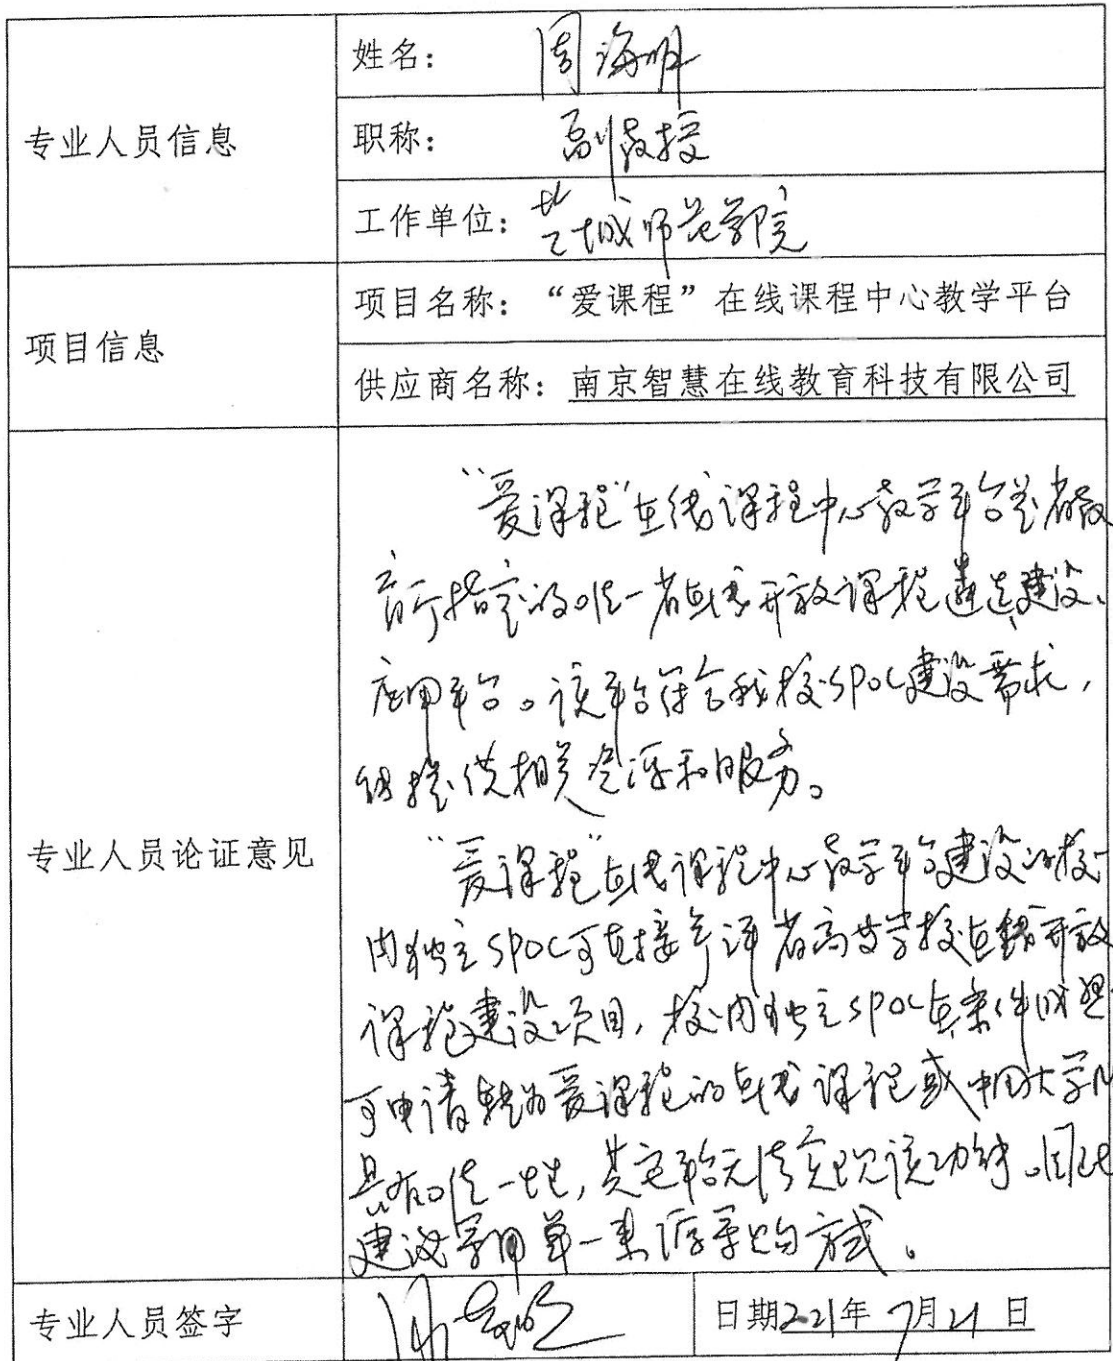 专业人员信息
姓名：周海明
职称：副教授
工作单位：盐城师范学院
项目信息
项目名称：“爱课程”在线课程中心教学平台
供应商名称：南京智慧在线教育科技有限公司
专业人员论证意见
“爱课程”在线课程中心教学平台是省教
育厅指定的唯一省在线开放课程建设、
应用平台。该平台符合我校SPOC建设需求，
能提供相关资源和服务。
“爱课程”在线课程中心教学平台建设的校
内独立SPOC可直接参评省高等学校在线开放
课程建设项目，校内独立SPOC在条件成熟
可申请转为爱课程的在线课程或中国大学
具有唯一性，其它平台无法实现该功能。因此
建议采用单一来源采购方式。
专业人员签字
日期2021年7月21日